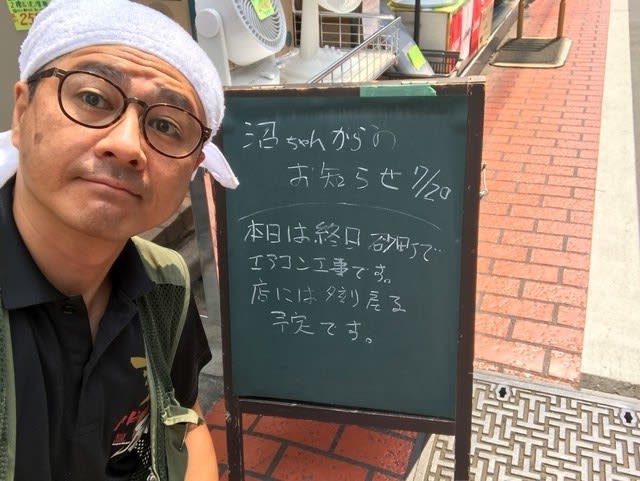 沼ちゃんからの
お知らせ 7/20
本日は終日 砂町で
エアコン工事です。
店には夕刻戻る
予定です。